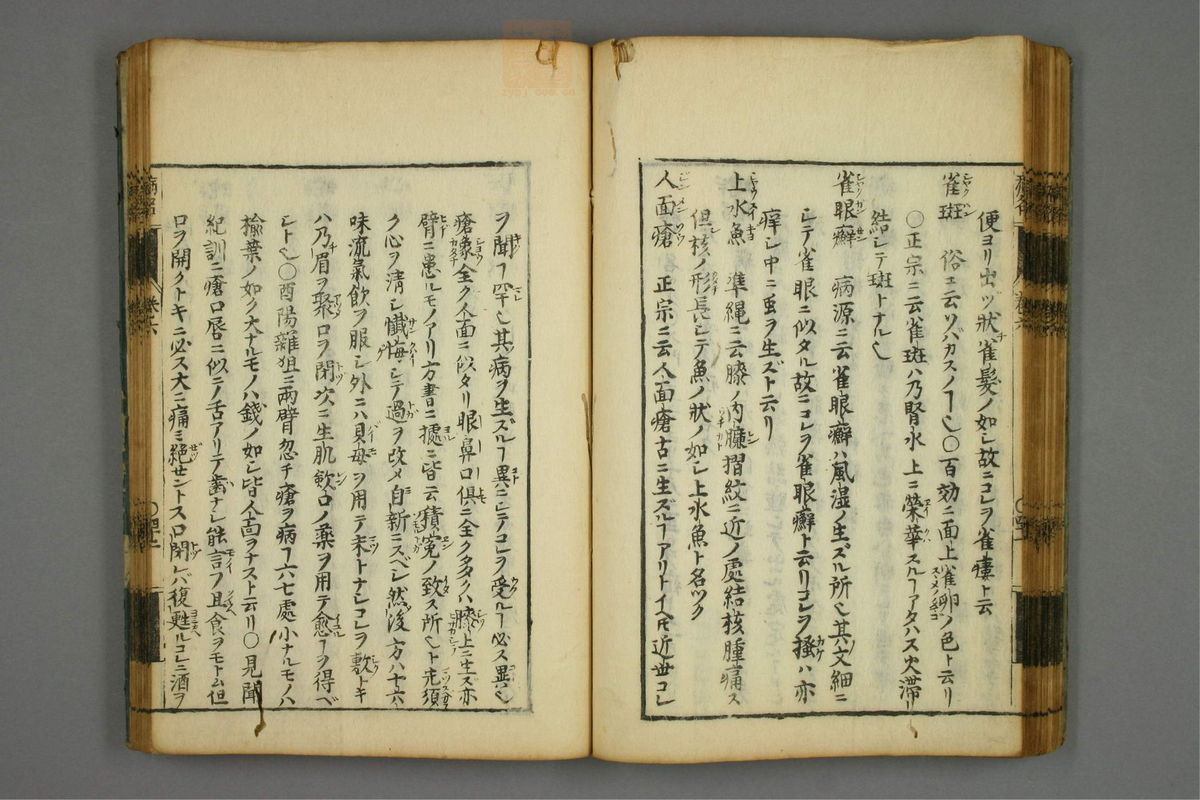 便ヨリ出ヅ狀雀髮ノ如シ故ニコレヲ雀瘻ト云
雀斑 俗ニ云ソバカスノ𪜈也〇百効ニ面上雀卵ノ色ト云リ
〇正宗ニ云雀斑ハ乃腎水上ニ榮華スルヿアタハス火滯
結シテ斑トナル也
雀眼癬 病源ニ云雀眼癬ハ風湿ノ生ズル所也其文細ニ
シテ雀眼ニ似タル故ニコレヲ雀眼癬ト云リコレヲ搔ハ亦
痒シ中ニ虫ヲ生ズト云リ
上水魚 準縄ニ云膝ノ内臁摺紋ニ近ノ處結核腫痛ス
但核ノ形長シテ魚ノ狀ノ如シ上水魚ト名ツク
人面瘡 正宗ニ云人面瘡古ニ生ズルヿアリトイヘ𪜈近世コレ
ヲ聞ヿ罕也其病ヲ生ズルヿ異ニシテコレヲ受ルヿ必ス異也
瘡象全ク人面ニ似タリ眼鼻口俱ニ全ク多クハ膝上ニ生ズ亦
臂ニ患ルモノアリ方書ニ據ニ皆云積寃ノ致ス所也ト先須
ク心ヲ清シ懺悔シテ過ヲ改メ自新ニスベシ然後方ハ十六
味流氣飲ヲ服シ外ニハ貝母ヲ用テ末トナシコレヲ敷トキ
ハ乃眉ヲ聚口ヲ閉次ニ生肌歛口ノ薬ヲ用テ愈ヿヲ得ベ
シト也〇酉陽雜狙ニ兩臂忽チ瘡ヲ病ヿ六七處小ナルモノハ
榆葉ノ如ク大ナルモノハ錢ノ如シ皆人面ヲナスト云リ〇見聞
紀訓ニ瘡口唇ニ似テ舌アリテ齒ナシ能言フ且食ヲモトム但
口ヲ開クトキニ必ス大ニ痛ミ絕セントス口閉レバ復甦ルコレニ酒ヲ